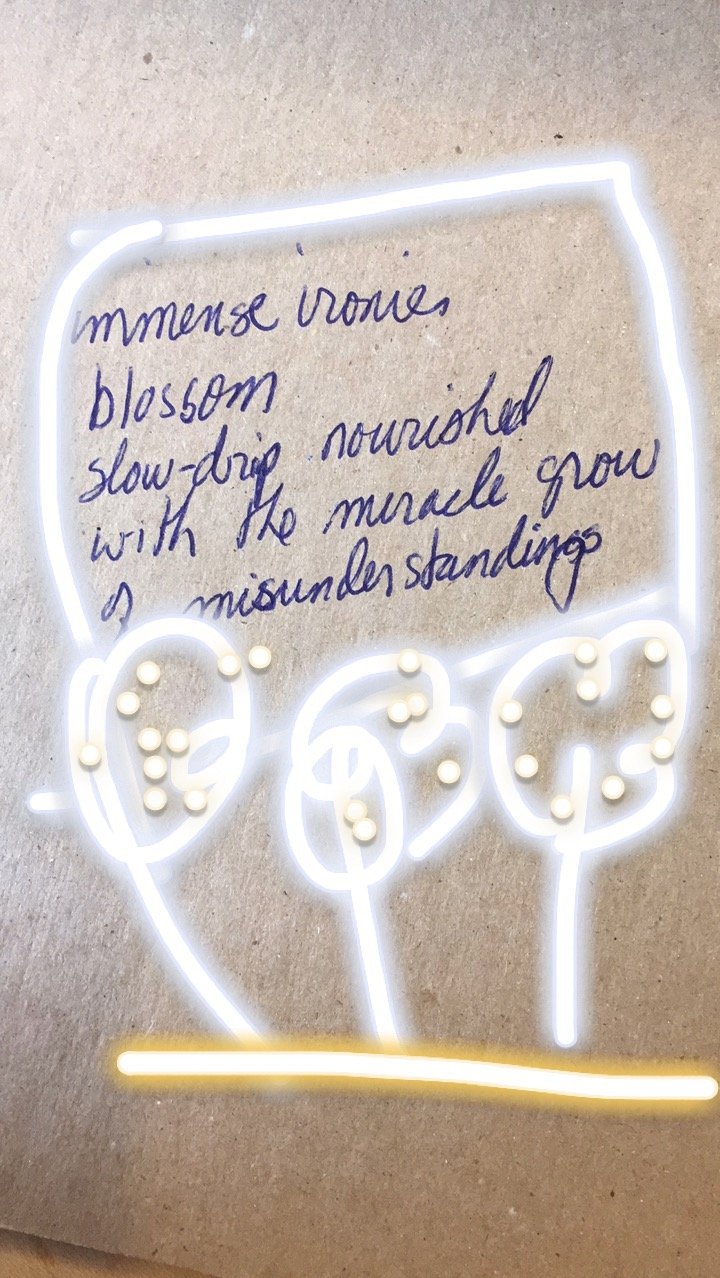 immense ironies
blossom
slow-drip nourished
with the miracle grow
of misunderstandings